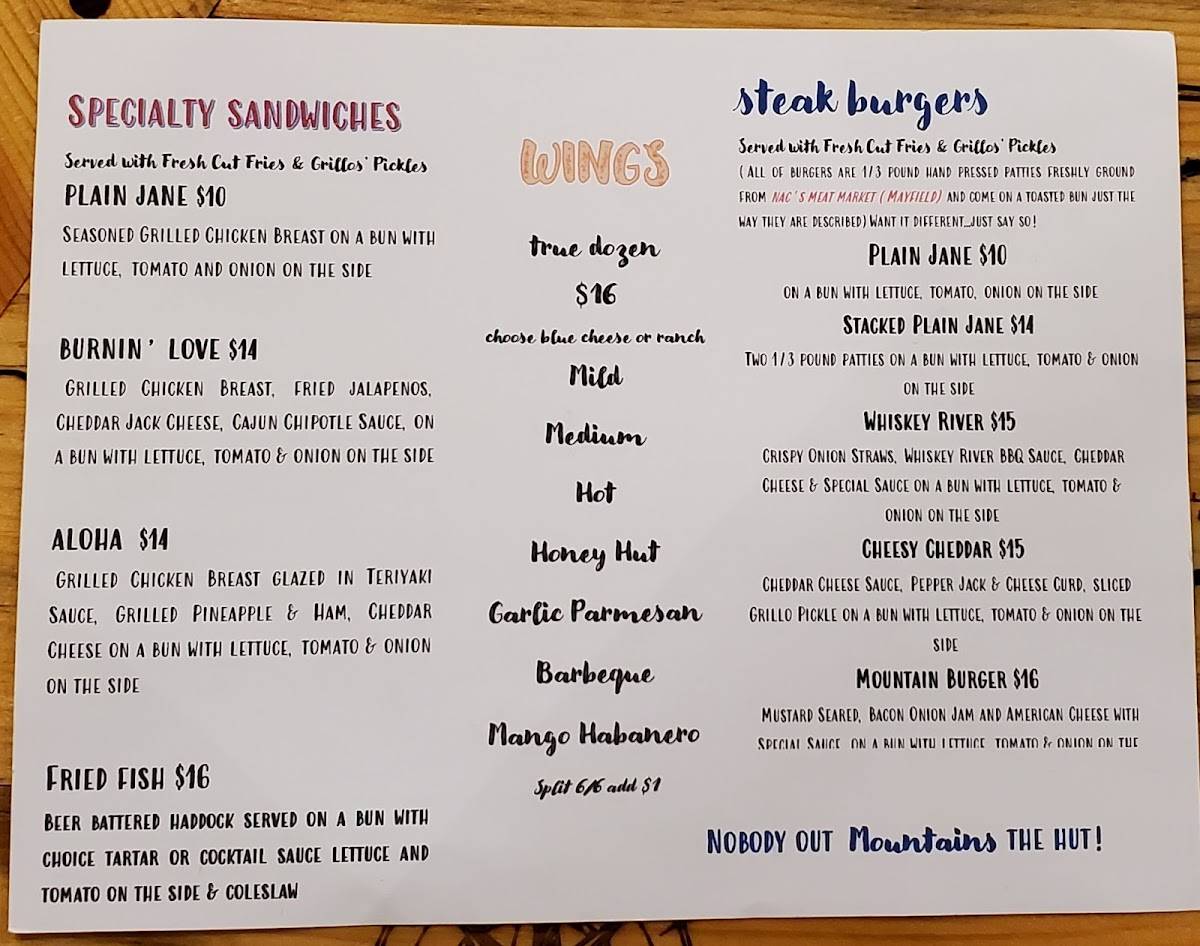 SPECIALTY SANDWICHES
Served with Fresh Cut Fries & Grillos' Pickles
PLAIN JANE $10
SEASONED GRILLED CHICKEN BREAST ON A BUN WITH
LETTUCE, TOMATO AND ONION ON THE SIDE
BURNIN' LOVE $14
GRILLED CHICKEN BREAST, FRIED JALAPENOS,
CHEDDAR JACK CHEESE, CAJUN CHIPOTLE SAUCE, ON
A BUN WITH LETTUCE, TOMATO & ONION ON THE SIDE
ALOHA $14
GRILLED CHICKEN BREAST GLAZED IN TERIYAKI
SAUCE, GRILLED PINEAPPLE & HAM, CHEDDAR
CHEESE ON A BUN WITH LETTUCE, TOMATO & ONION
ON THE SIDE
FRIED FISH $16
BEER BATTERED HADDOCK SERVED ON A BUN WITH
CHOICE TARTAR OR COCKTAIL SAUCE LETTUCE AND
TOMATO ON THE SIDE & COLESLAW
WINGS
true dozen
$16
choose blue cheese or ranch
Mild
Medium
Hot
Honey Hut
Garlic Parmesan
Barbeque
Mango Habanero
Split 6/6 add $1
steak burgers
Served with Fresh Cut Fries & Grillos' Pickles
(ALL OF BURGERS ARE 1/3 POUND HAND PRESSED PATTIES FRESHLY GROUND
FROM NAC'S MEAT MARKET (MAYFIELD) AND COME ON A TOASTED BUN JUST THE
WAY THEY ARE DESCRIBED) WANT IT DIFFERENT...JUST SAY SO!
PLAIN JANE $10
ON A BUN WITH LETTUCE, TOMATO, ONION ON THE SIDE
STACKED PLAIN JANE $14
TWO 1/3 POUND PATTIES ON A BUN WITH LETTUCE, TOMATO & ONION
ON THE SIDE
WHISKEY RIVER $15
CRISPY ONION STRAWS, WHISKEY RIVER BBQ SAUCE, CHEDDAR
CHEESE & SPECIAL SAUCE ON A BUN WITH LETTUCE, TOMATO &
ONION ON THE SIDE
CHEESY CHEDDAR $15
CHEDDAR CHEESE SAUCE, PEPPER JACK & CHEESE CURD, SLICED
GRILLO PICKLE ON A BUN WITH LETTUCE, TOMATO & ONION ON THE
SIDE
MOUNTAIN BURGER $16
MUSTARD SEARED, BACON ONION JAM AND AMERICAN CHEESE WITH
SPECIAL SAUCE ON A BUN WITH LETTUCE, TOMATO & ONION ON THE
NOBODY OUT Mountains THE HUT!